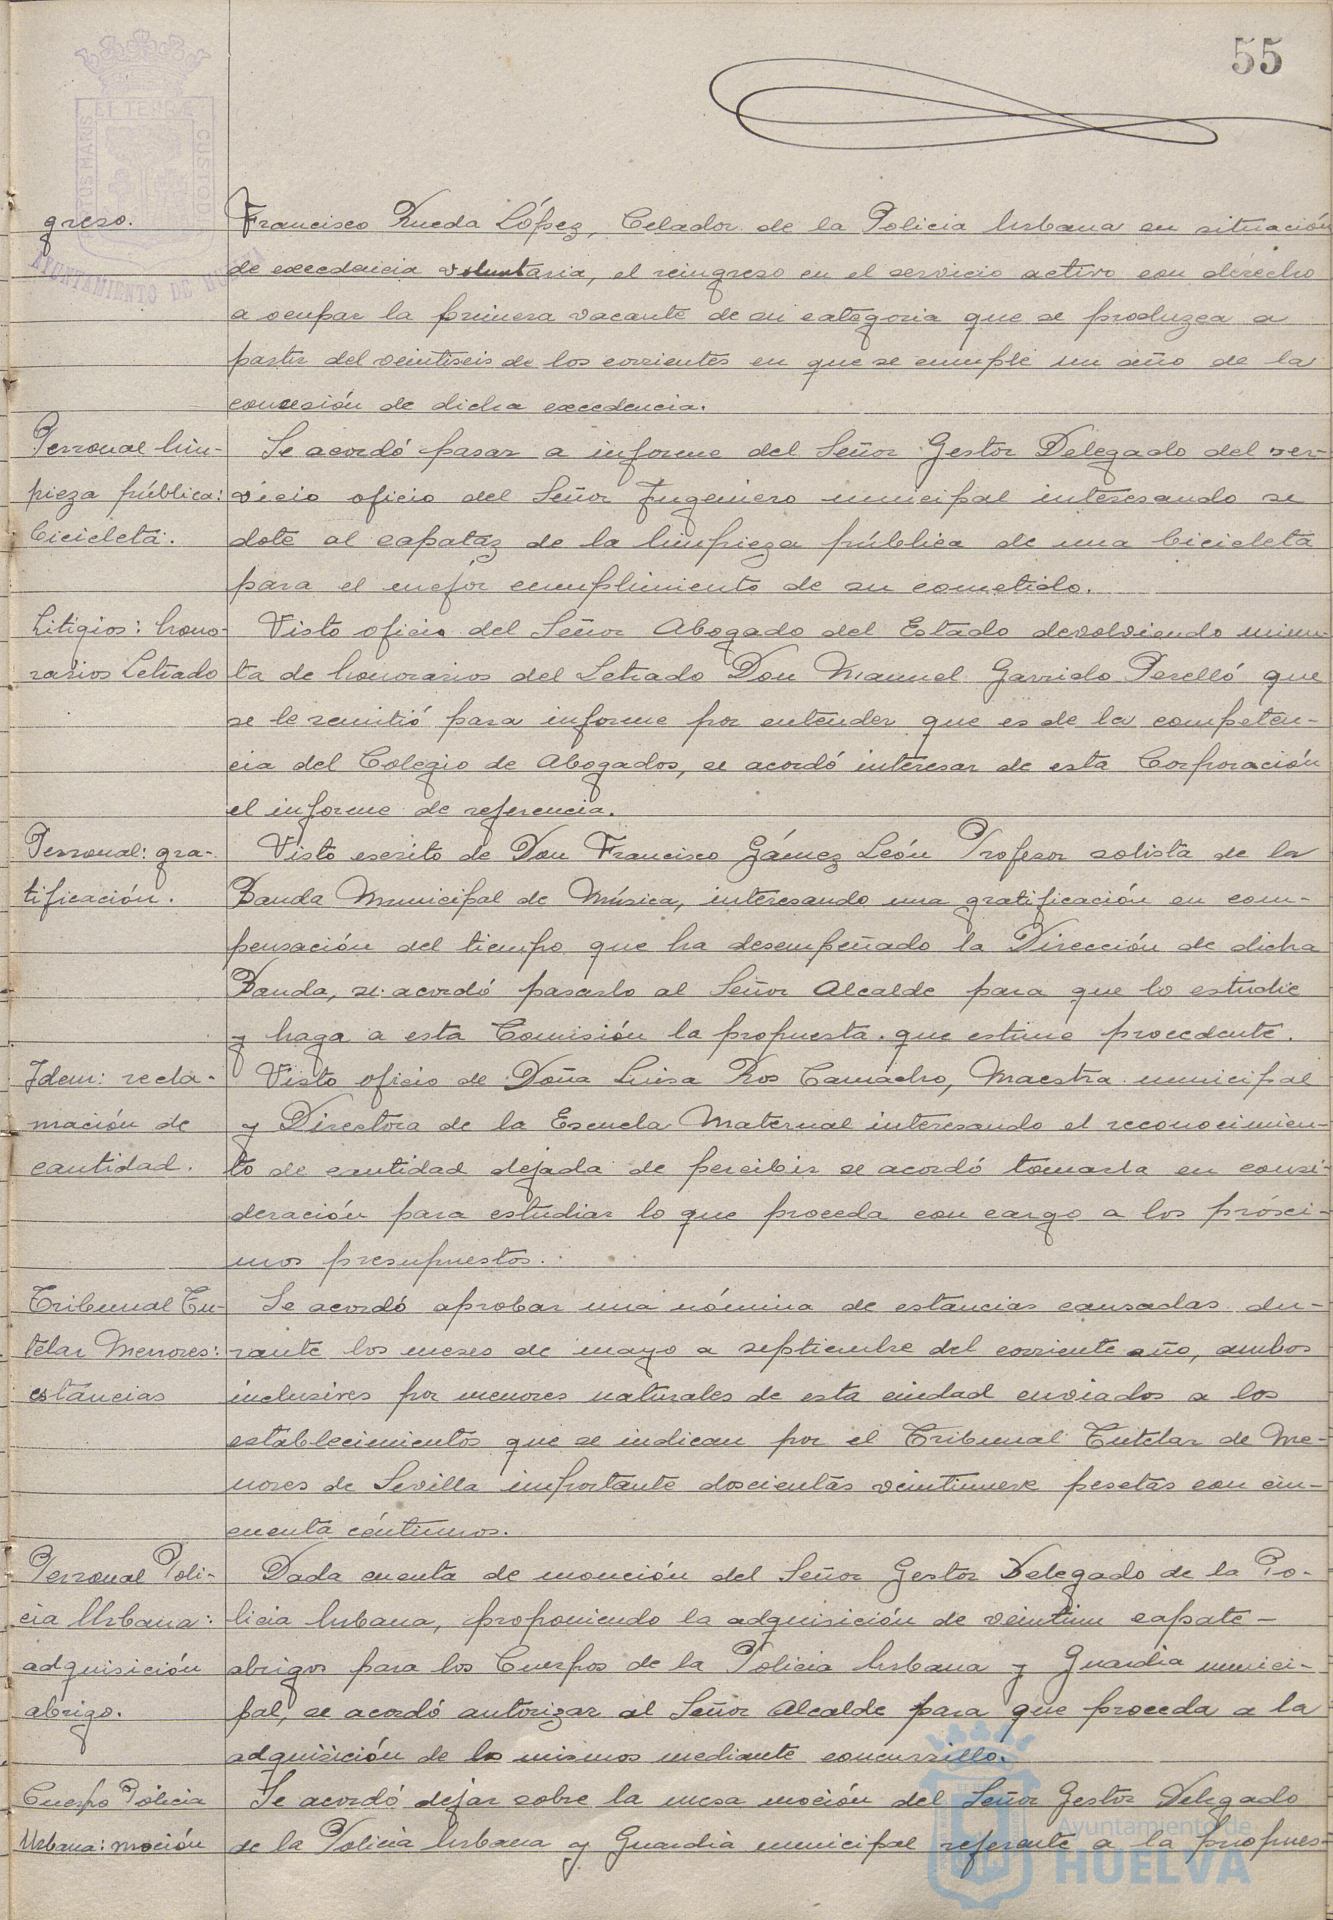 55
PORTUS MARIS ET TERRÆ CUSTODIA
AYUNTAMIENTO DE HUELVA
greso.
Francisco Rueda López, Celador de la Policia Urbana en situación
de excedencia voluntaria, el reingreso en el servicio activo con derecho
a ocupar la primera vacante de su categoria que se produzca a
partir del veintiseis de los corrientes en que se cumple un año de la
concesión de dicha excedencia.
Personal lim-
pieza pública:
bicicleta.
Se acordó pasar a informe del Señor Gestor Delegado del ser-
vicio oficio del Señor Ingeniero municipal interesando se
dote al capataz de la limpieza pública de una bicicleta
para el mejor cumplimiento de su cometido.
Litigios: hono-
rarios Letrado
Visto oficio del Señor Abogado del Estado devolviendo minu-
ta de honorarios del Letrado Don Manuel Garrido Perelló que
se le remitió para informe por entender que es de la competen-
cia del Colegio de Abogados, se acordó interesar de esta Corporación
el informe de referencia.
Personal: gra-
tificación.
Visto escrito de Don Francisco Gámez León Profesor solista de la
Banda Municipal de Música, interesando una gratificación en com-
pensación del tiempo que ha desempeñado la Dirección de dicha
Banda, se acordó pasarlo al Señor Alcalde para que lo estudie
y haga a esta Comisión la propuesta que estime procedente.
Idem: recla-
mación de
cantidad.
Visto oficio de Doña Luisa Ros Camacho, Maestra municipal
y Directora de la Escuela Maternal interesando el reconocimien-
to de cantidad dejada de percibir se acordó tomarla en consi-
deración para estudiar lo que proceda con cargo a los prósci-
mos presupuestos.
Tribunal Tu-
telar Menores:
estancias
Se acordó aprobar una nómina de estancias causadas du-
rante los meses de mayo a septiembre del corriente año, ambos
inclusives por menores naturales de esta ciudad enviados a los
establecimientos que se indican por el Tribunal Tutelar de Me-
nores de Sevilla importante doscientas veintinueve pesetas con cin-
cuenta céntimos.
Personal Poli-
cia Urbana:
adquisición
abrigo.
Dada cuenta de moción del Señor Gestor Delegado de la Po-
licia Urbana, proponiendo la adquisición de veintiun capote-
abrigos para los Cuerpos de la Policia Urbana y Guardia munici-
pal, se acordó autorizar al Señor Alcalde para que proceda a la
adquisición de los mismos mediante concursillo.
Cuerpo Policia
Urbana: moción
Se acordó dejar sobre la mesa moción del Señor Gestor Delegado
de la Policia Urbana y Guardia municipal referente a la propues-
Ayuntamiento de
HUELVA